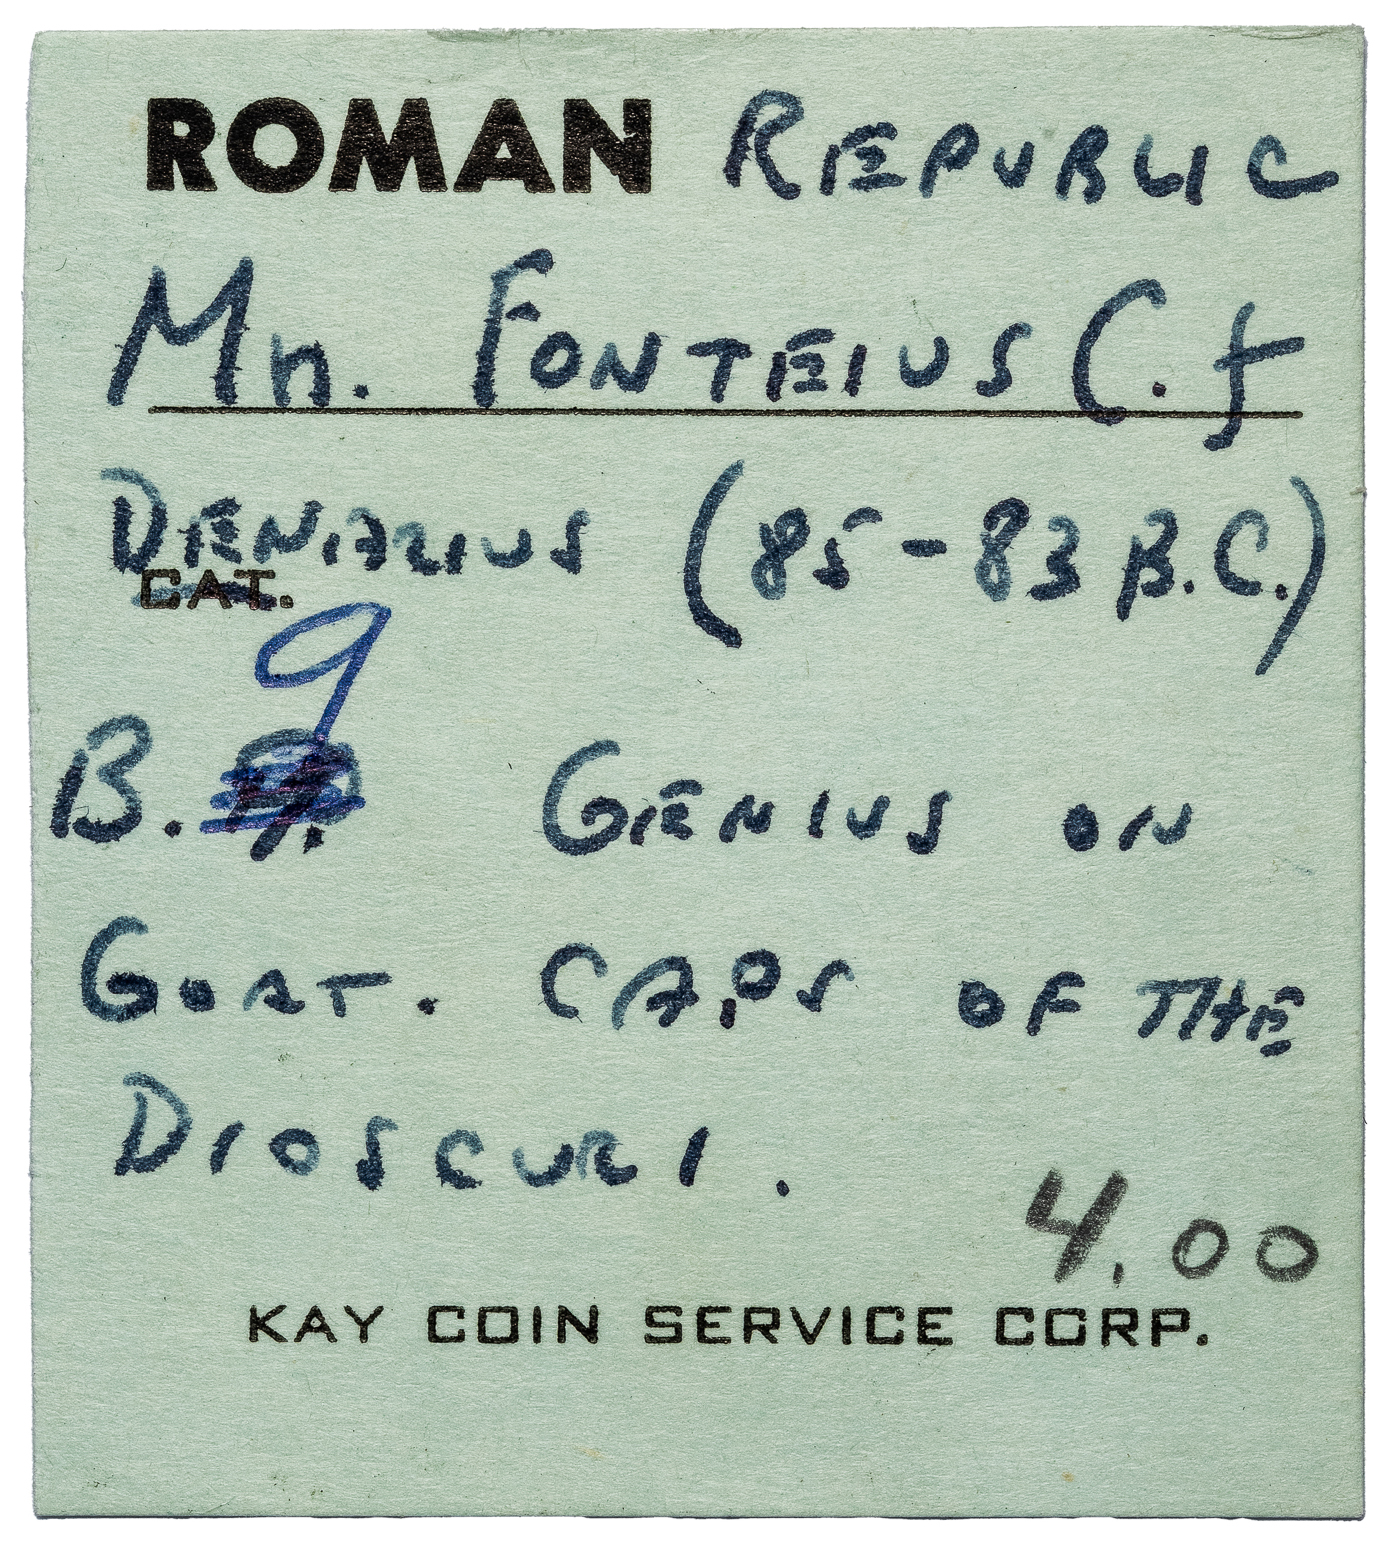 ROMAN REPUBLIC
Mn. FONTEIUS C. f
DENARIUS (85-83 B.C.)
CAT.
9
B. GENIUS ON
GOAT. CAPS OF THE
DIOSCURI.
4.00
KAY COIN SERVICE CORP.